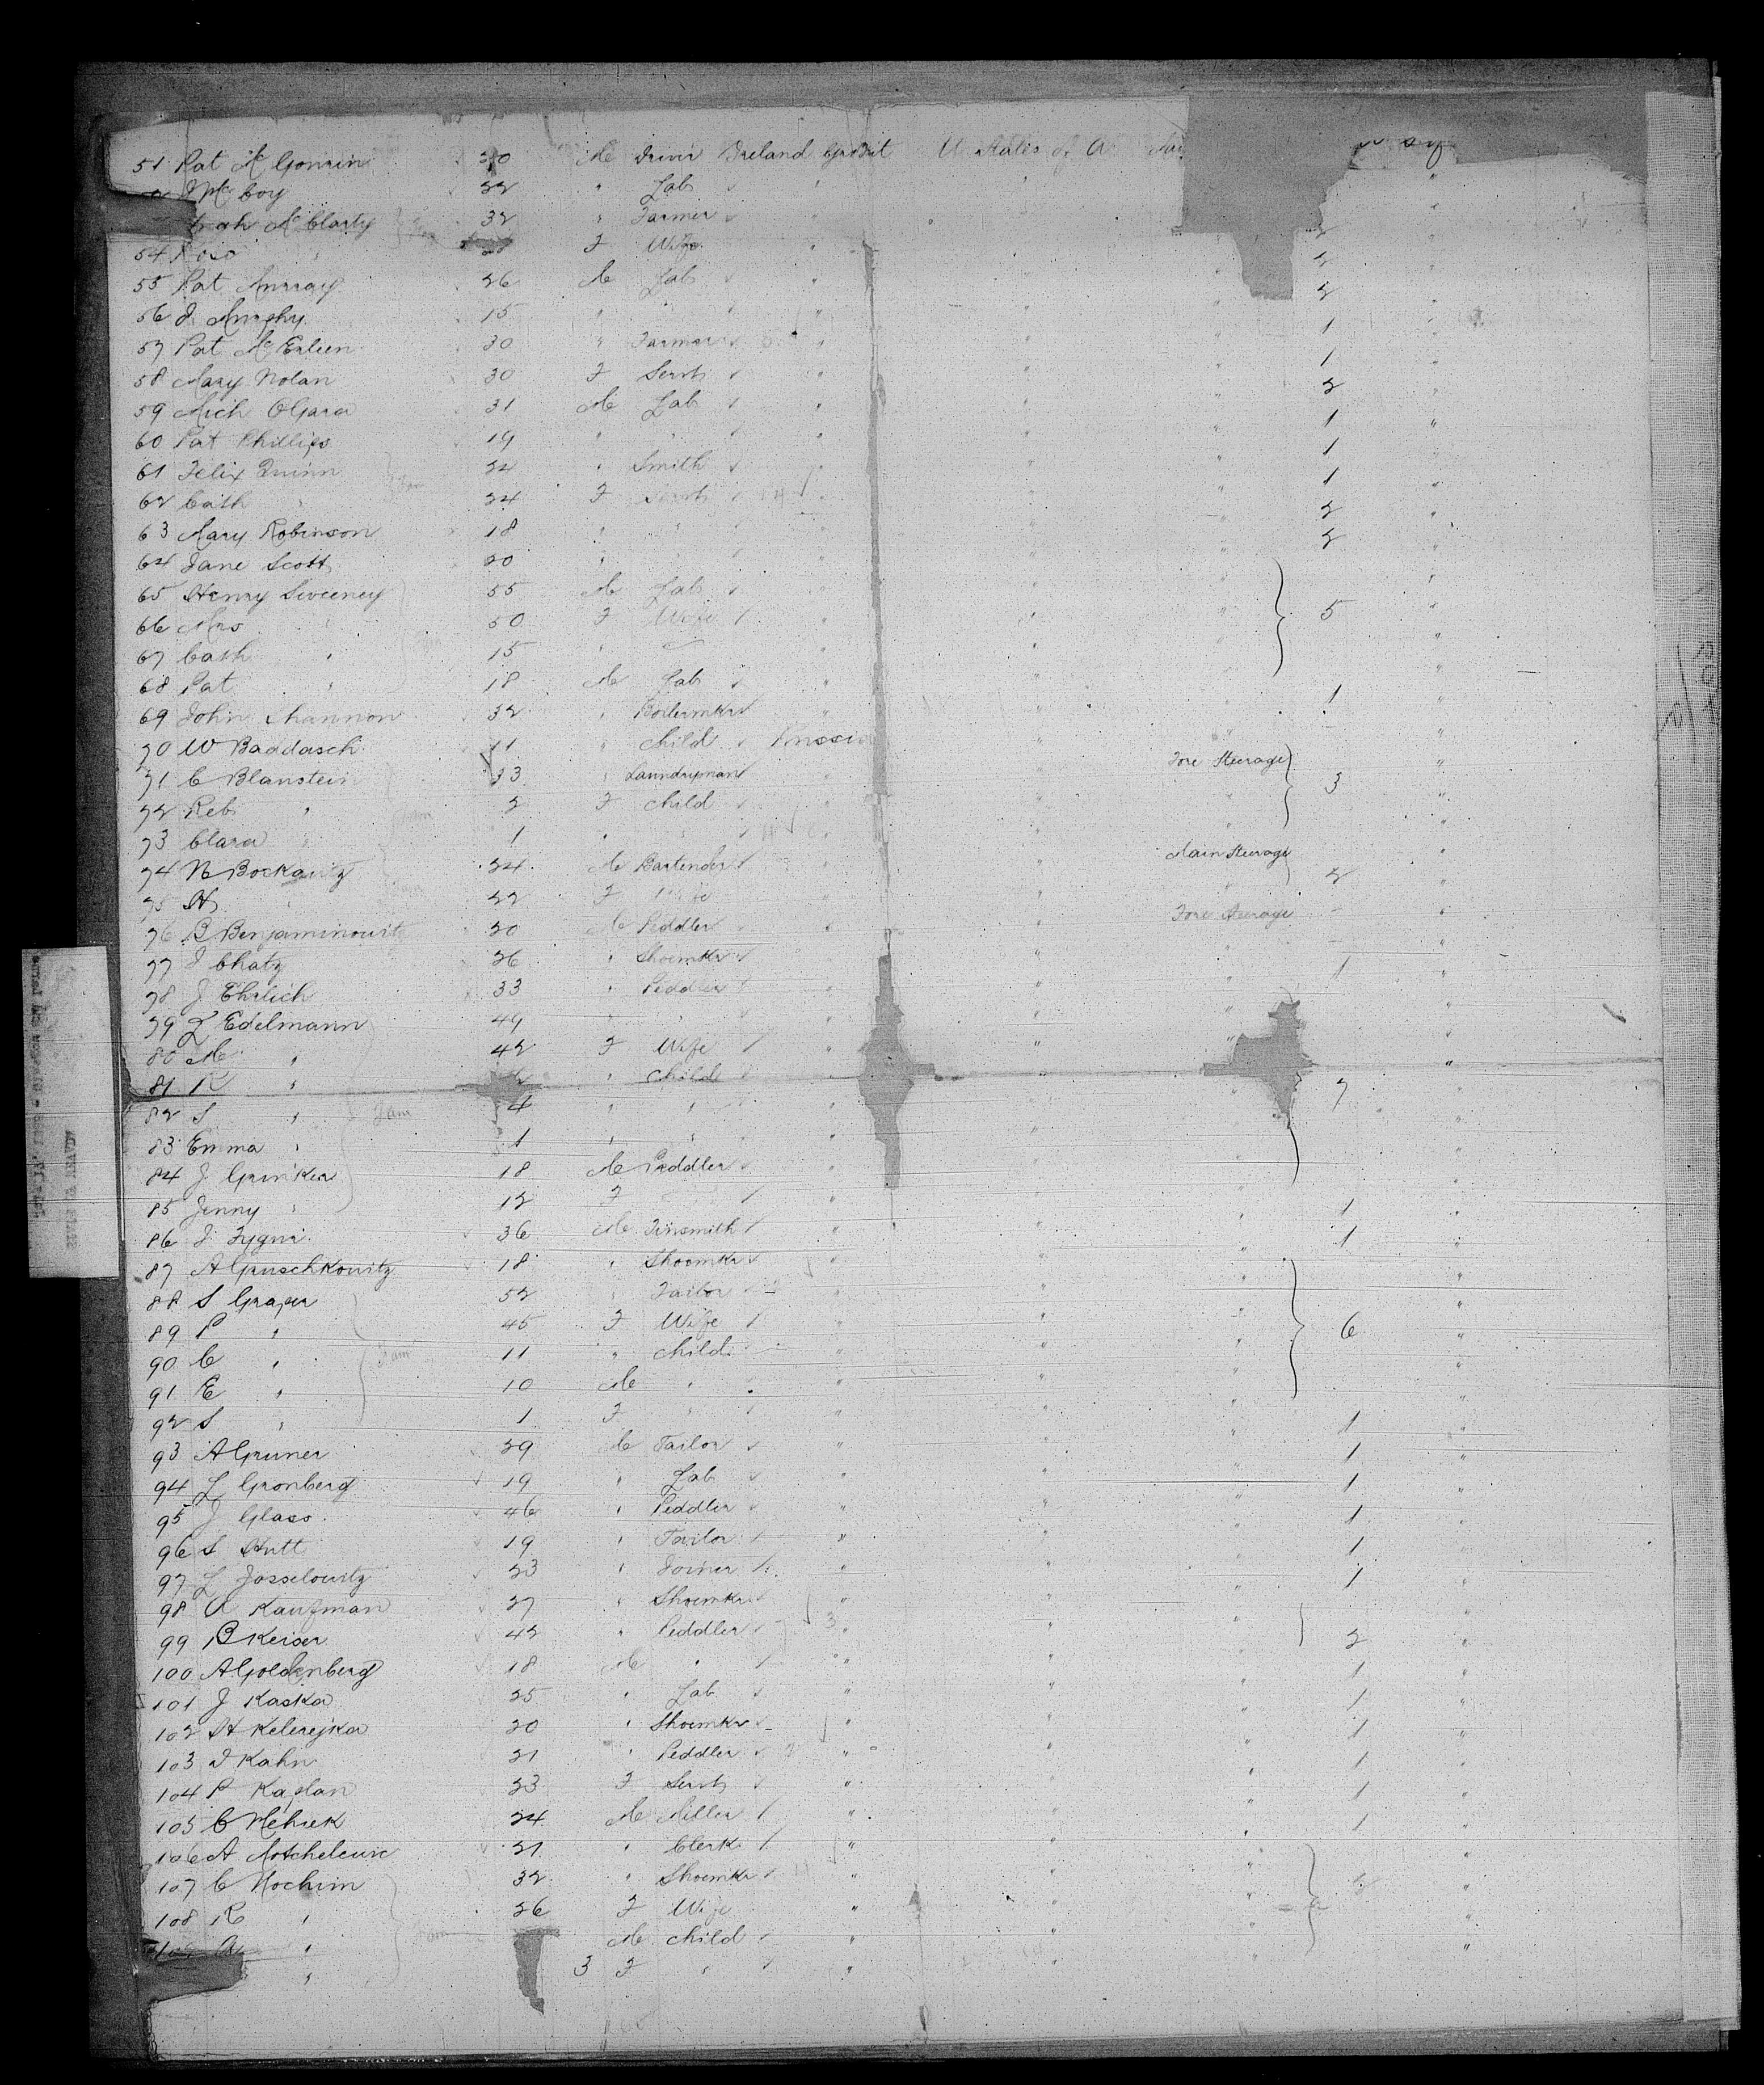 51 Pat Mc Gowrin 20 M Driver Ireland Gt Brit U States of A
J Mc Coy 22 " Lab "
Mc Clarty 32 " Farmer "
54 Rose " F Wife "
55 Pat Murray 26 M Lab " 2
56 J Murphy 15 " " " 2
57 Pat Mc Erleen 30 " Farmer " 1
58 Mary Nolan 30 F Servt " 1
59 Mich OGara 31 M Lab " 2
60 Pat Phillips 19 " " " 1
61 Felix Quinn 24 " Smith " 1
62 Cath " 24 F Servt " 1
63 Mary Robinson 18 " " " 2
64 Jane Scott 20 " " " 2
65 Henry Sweeney 55 M Lab "
66 Mrs " 50 F Wife " 5
67 Cath " 15 " "
68 Pat " 18 M Lab "
69 John Shannon 32 " Boilermkr " 1
70 W Baddasch 11 " Child Prussia "
71 C Blanstein 33 " Laundryman " Fore Steerage
72 Reb " 2 F Child " 3
73 Clara " 1 " " "
74 N Bockawitz 24 M Bartender " Main Steerage
75 H " 22 F Wife " 2
76 B Benjaminowitz 20 M Peddler " Fore Steerage
77 J Chatz 26 " Shoemkr "
78 J Ehrlich 33 " Peddler " 1
79 L Edelmann 49 " " "
80 M " 42 F Wife "
81 R " " Child 7
82 S " Fam 4 " " "
83 Emma " 1 " " "
84 J Grinker 18 M Peddler "
85 Jenny " 12 F "
86 J Zygni 36 M Tinsmith " 1
87 A Gruschkowitz 18 " Shoemkr " 1
88 S Graper 52 " Tailor "
89 P " 45 F Wife "
90 C " Fam 11 " Child " 6
91 E " 10 M " "
92 S " 1 F " "
93 A Gruner 29 M Tailor " 1
94 L Gronberg 19 " Lab " 1
95 J Glass 46 " Peddler " 1
96 S Hutt 19 " Tailor " 1
97 L Josselowitz 23 " Joiner " 1
98 A Kaufman 27 " Shoemkr " 1
99 B Keiser 42 " Peddler "
100 A Goldenberg 18 M " " 2
101 J Kaska 25 " Lab " 1
102 St Kelerejka 20 " Shoemkr " 1
103 J Kahn 21 " Peddler " 1
104 P Kaplan 23 F Servt " 1
105 C Mehrek 24 M Miller " 1
106 A Motchelewic 21 " Clerk " 1
107 C Nochim 32 " Shoemkr "
108 R " 26 F Wife "
109 A " M Child "
" 3 F " "